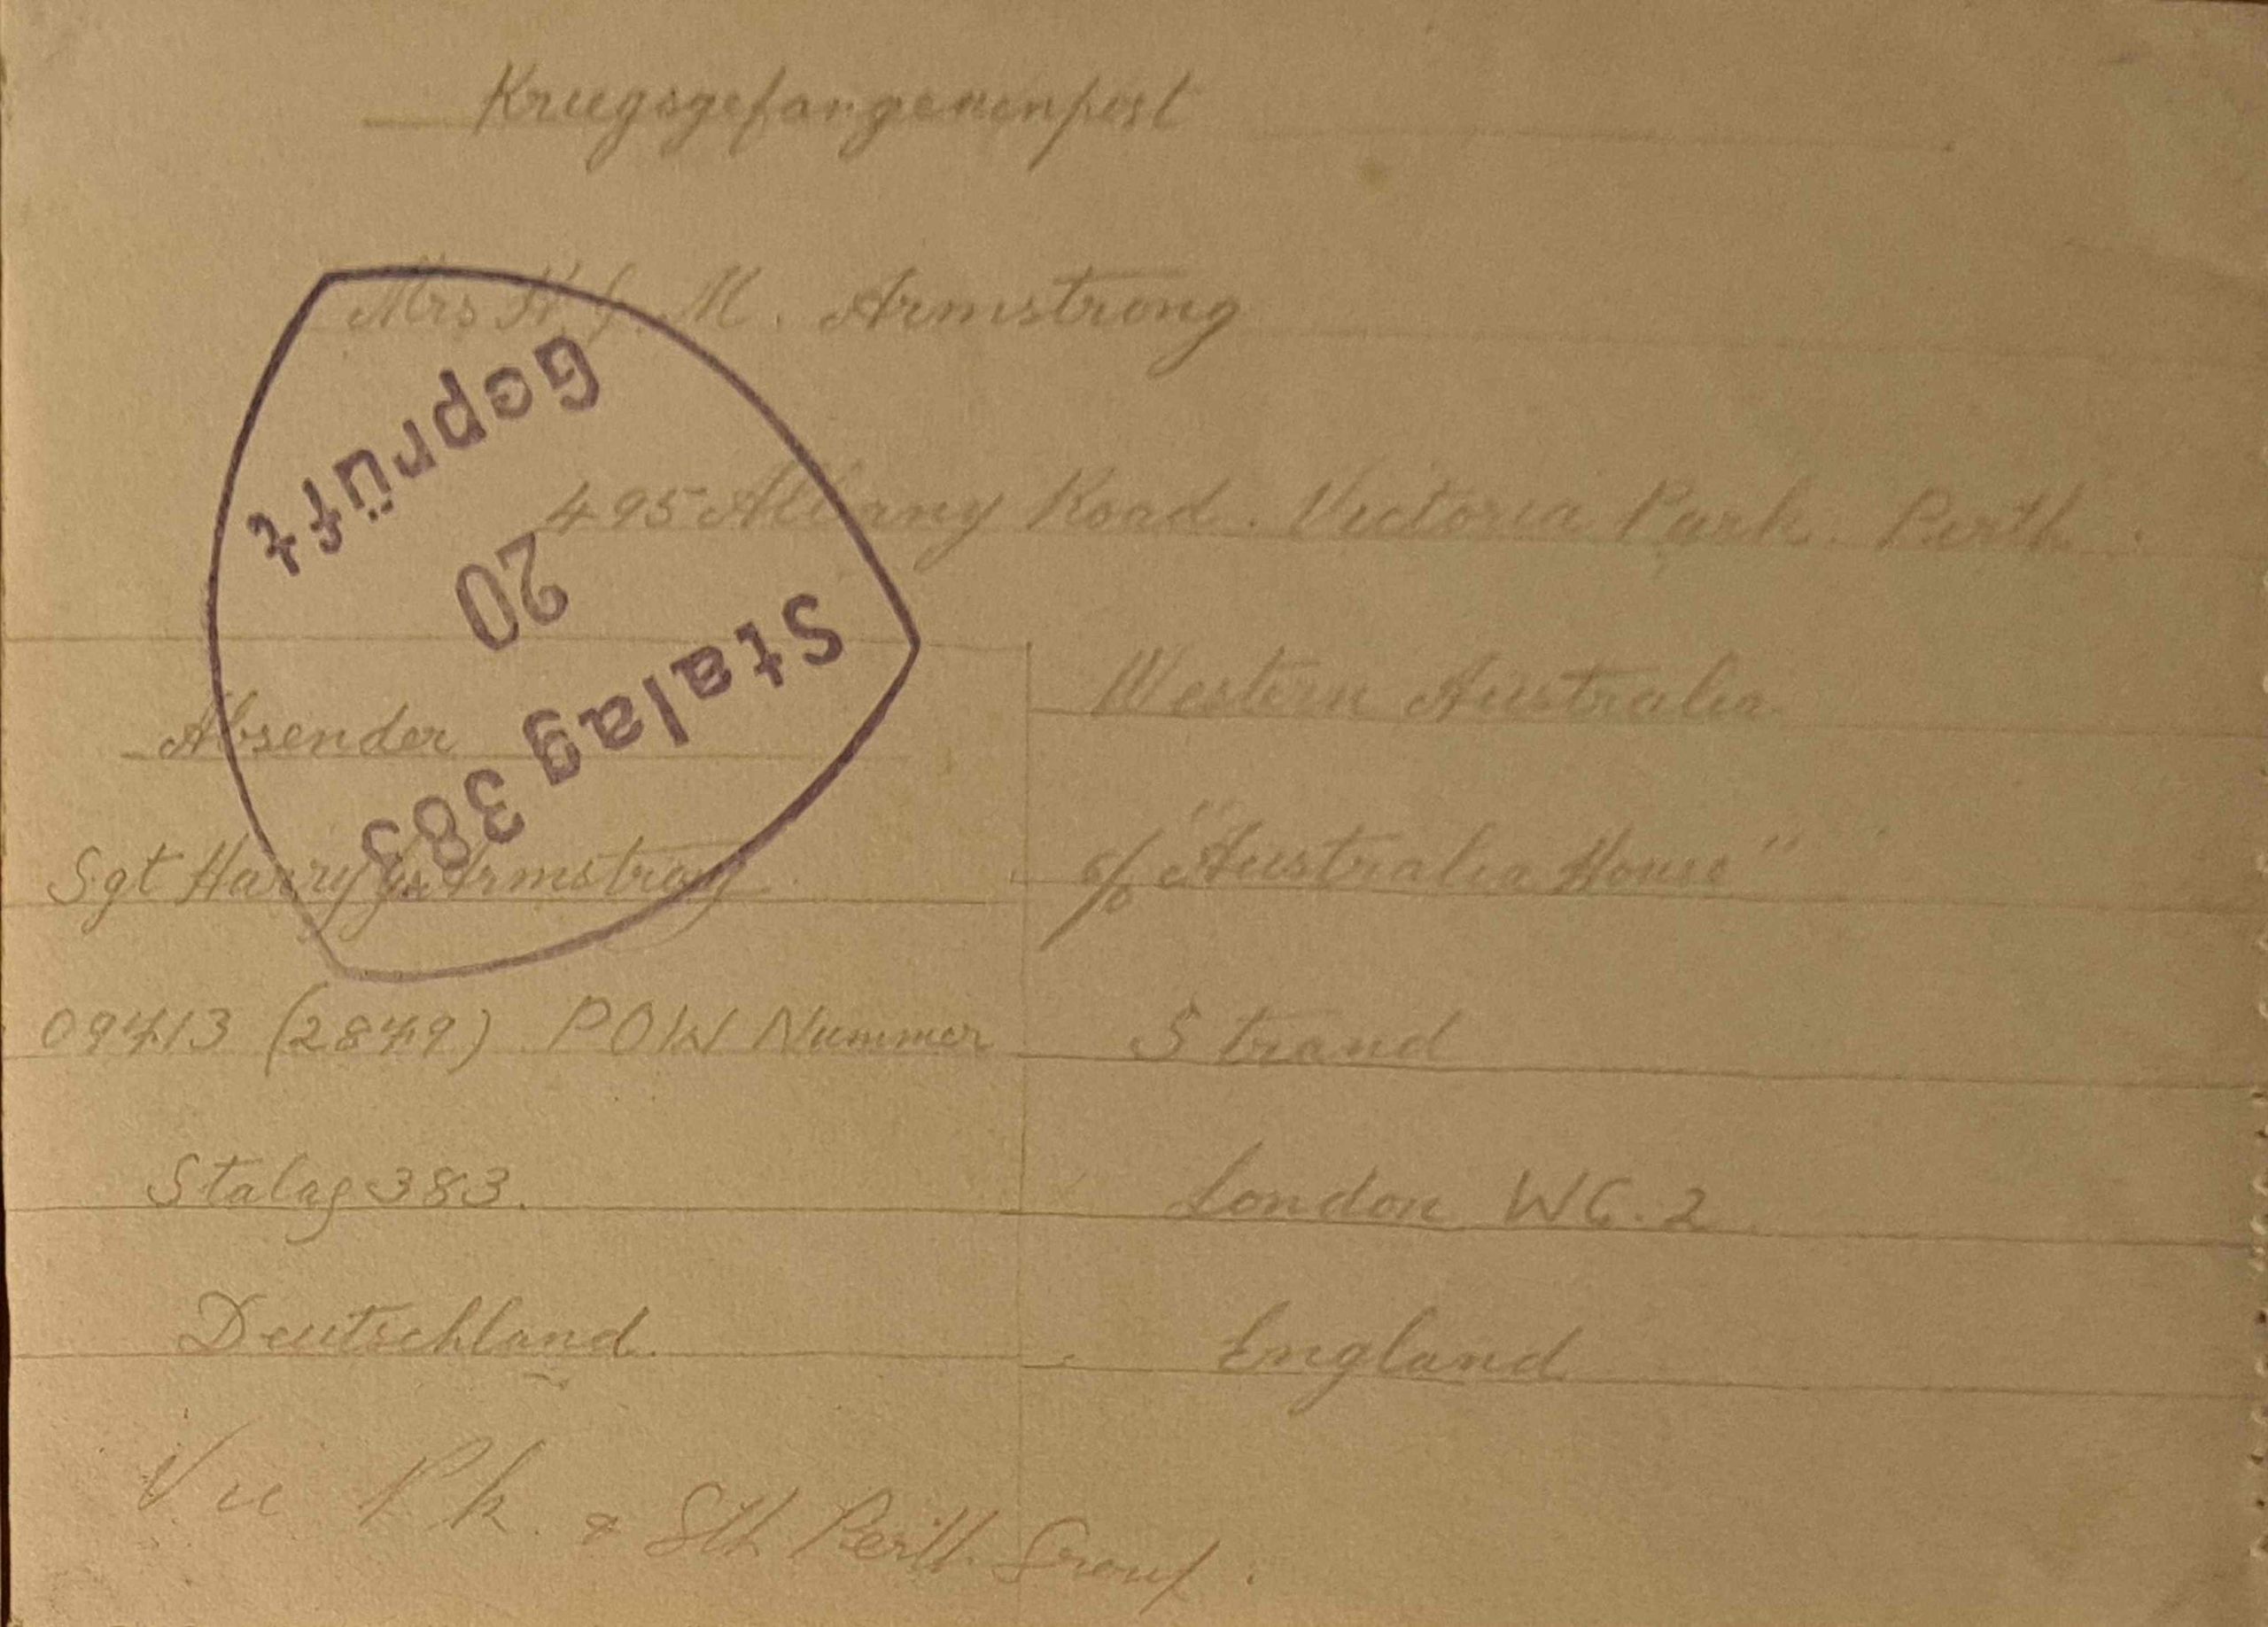 Kriegsgefangenenpost
Mrs H. J. M. Armstrong
495 Albany Road. Victoria Park. Perth.
Western Australia
c/o "Australia House"
Strand
London WC.2
England
Absender
Sgt Harry Armstrong
09413 (2849) POW Nummer
Stalag 383.
Deutschland.
Vic Pk. & Sth Perth. Group.
Stalag 383
20
Geprüft